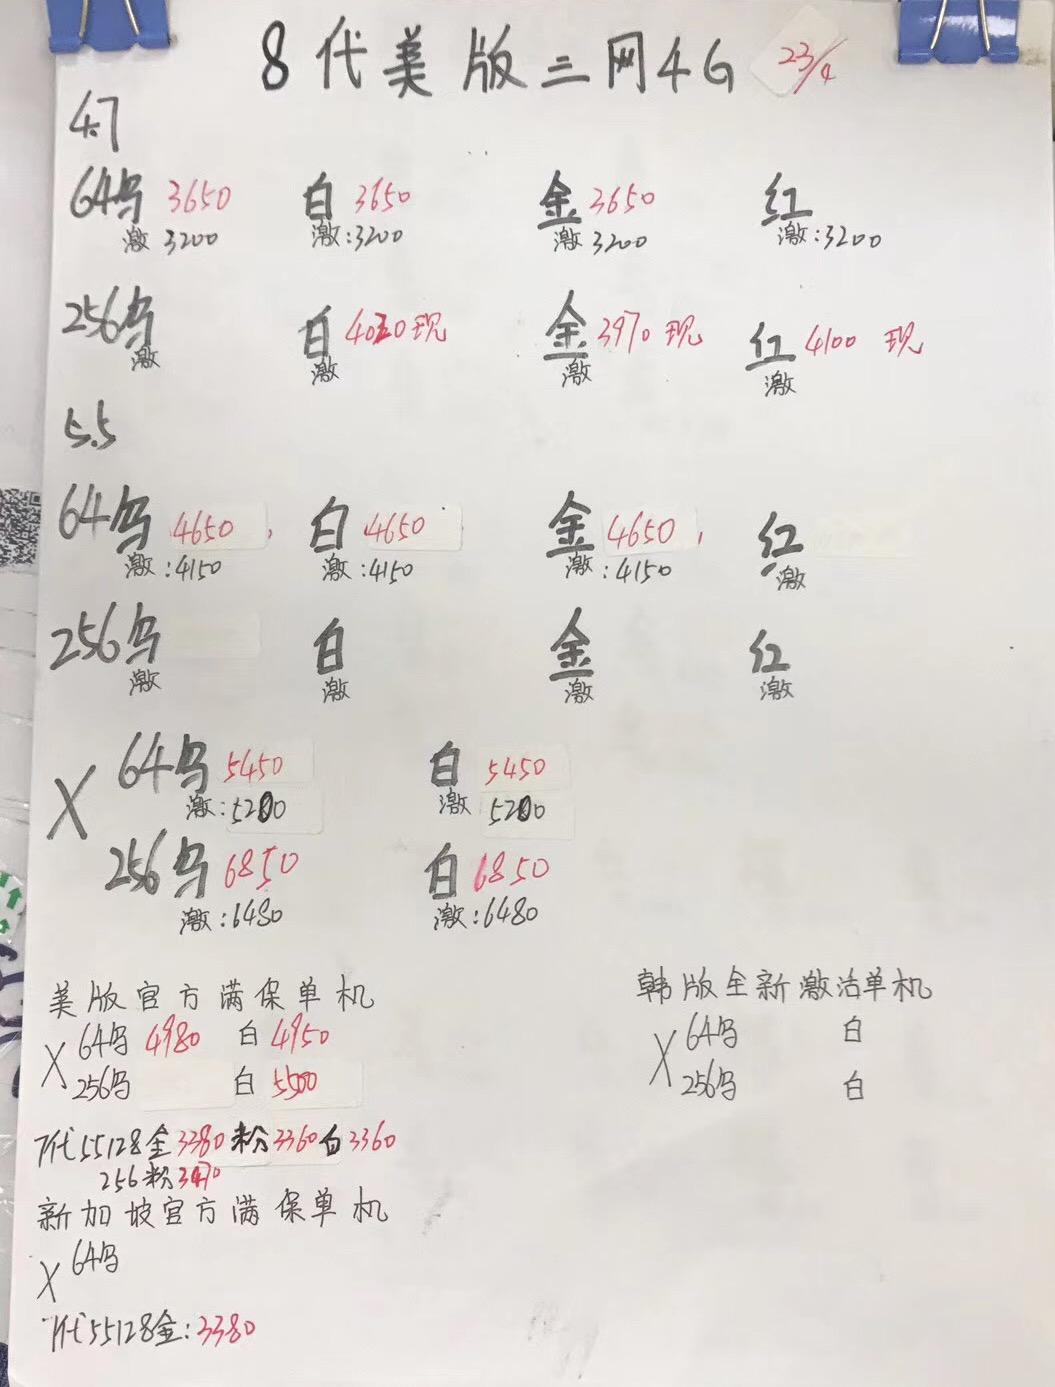 8代美版三网4G 23/4
4.7
64乌 3650 白 3650 金 3650 红
激 3200 激:3200 激 3200 激:3200
256乌 白 4020现 金 3970现 红 4100 现
激 激 激 激
5.5
64乌 4650 白 4650 金 4650 红
激:4150 激:4150 激:4150 激
256乌 白 金 红
激 激 激 激
X 64乌 5450 白 5450
激:5200 激 5200
256乌 6850 白 6850
激:6480 激:6480
美版官方满保单机
X 64乌 4980 白 4950
256乌 白 5500
7代55128金3380粉3360白3360
256粉3470
新加坡官方满保单机
X 64乌
7代55128金:3380
韩版全新激活单机
X 64乌 白
256乌 白